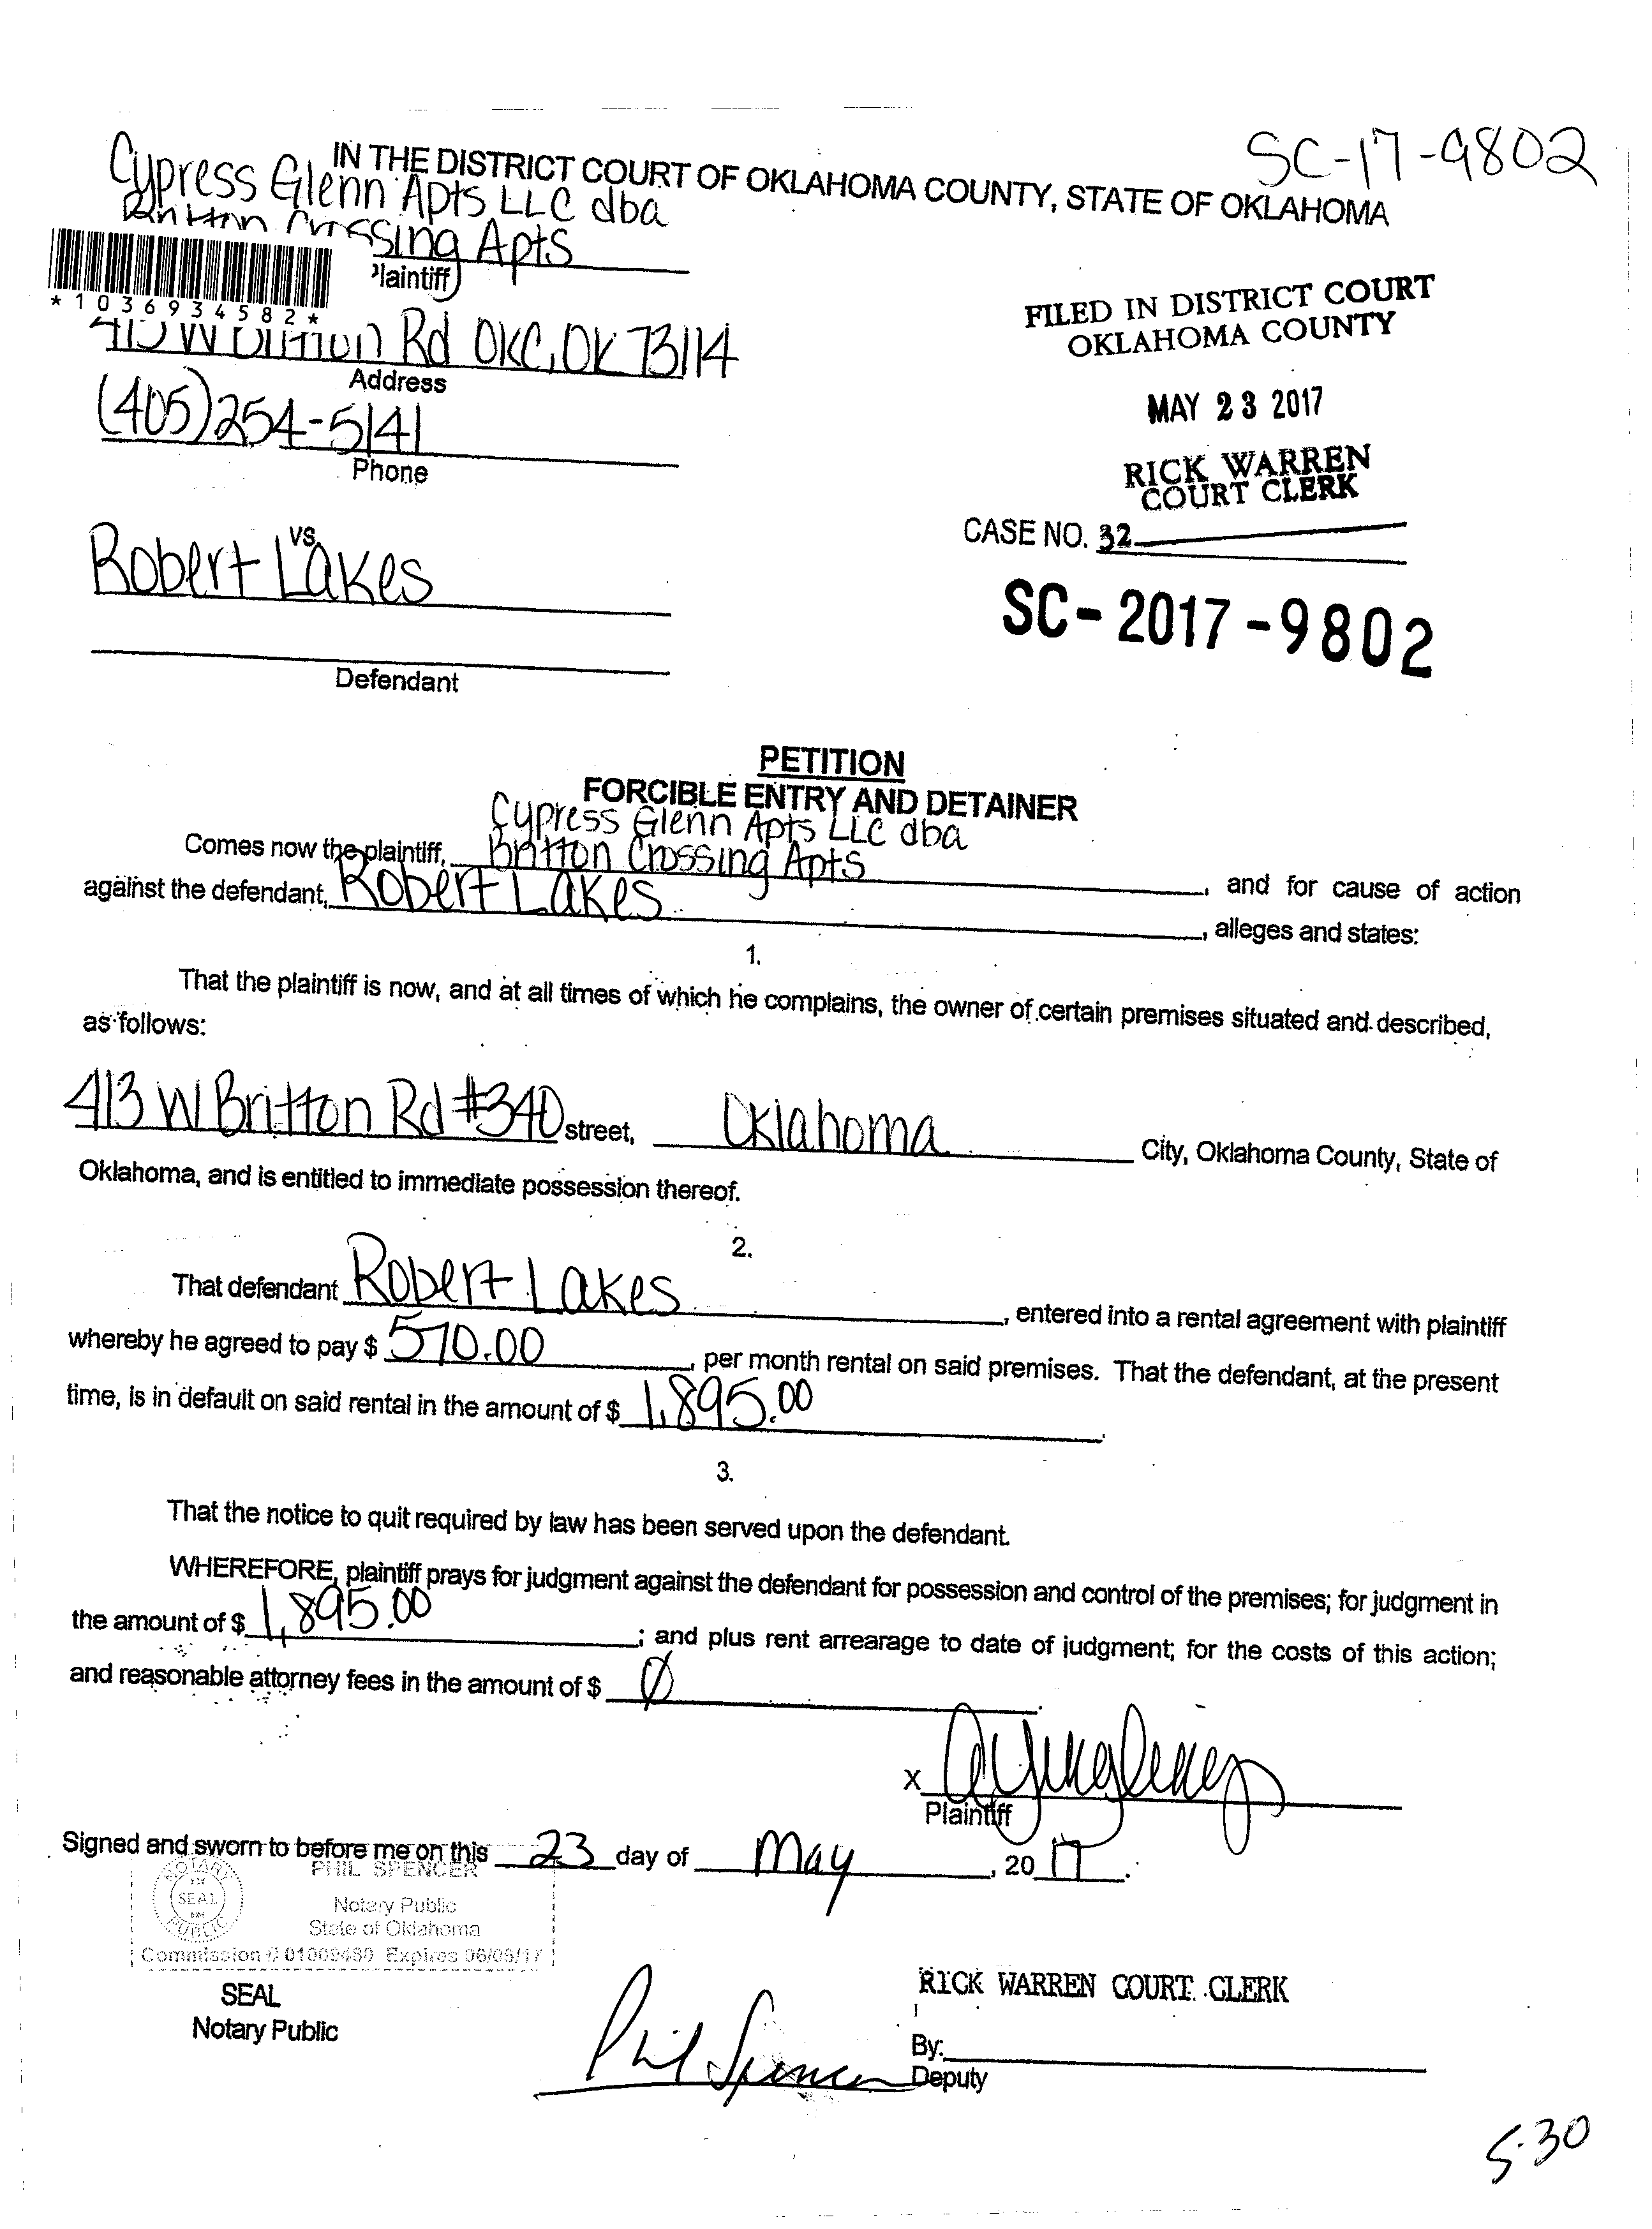 SC-17-9802
IN THE DISTRICT COURT OF OKLAHOMA COUNTY, STATE OF OKLAHOMA
Cypress Glenn Apts LLC dba
Britton Crossing Apts
Plaintiff
*1036934582*
413 W Britton Rd OKC, OK 73114
Address
(405)254-5141
Phone
FILED IN DISTRICT COURT
OKLAHOMA COUNTY
MAY 23 2017
RICK WARREN
COURT CLERK
CASE NO. 32
SC-2017-9802
vs.
Robert Lakes
Defendant
PETITION
FORCIBLE ENTRY AND DETAINER
Cypress Glenn Apts LLC dba
Comes now the plaintiff, Britton Crossing Apts, and for cause of action
against the defendant, Robert Lakes, alleges and states:
1.
That the plaintiff is now, and at all times of which he complains, the owner of certain premises situated and described,
as follows:
413 W Britton Rd #340 street, Oklahoma City, Oklahoma County, State of
Oklahoma, and is entitled to immediate possession thereof.
2.
That defendant Robert Lakes, entered into a rental agreement with plaintiff
whereby he agreed to pay $ 570.00, per month rental on said premises. That the defendant, at the present
time, is in default on said rental in the amount of $ 1,895.00.
3.
That the notice to quit required by law has been served upon the defendant.
WHEREFORE, plaintiff prays for judgment against the defendant for possession and control of the premises; for judgment in
the amount of $ 1,895.00; and plus rent arrearage to date of judgment; for the costs of this action;
and reasonable attorney fees in the amount of $ Ø.
X
Plaintiff
Signed and sworn to before me on this 23 day of May, 2017.
PHIL SPENCER
Notary Public
State of Oklahoma
NOTARY
SEAL
PUBLIC
Commission # 01009480 Expires 06/09/17
SEAL
Notary Public
Phil Spencer
RICK WARREN COURT CLERK
By:
Deputy
5-30